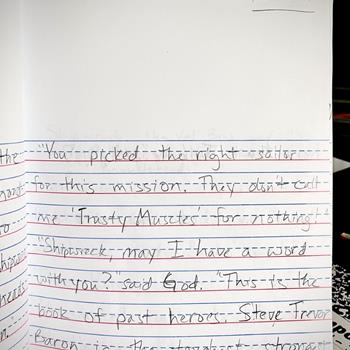 the "You picked the right sailor
for this mission. They don't call
so me 'Trusty Muscles' for nothing!"
"Shipwreck, may I have a word
with you?" said God. "This is the
book of past heroes. Steve Trevor
Baron is the toughest strongest